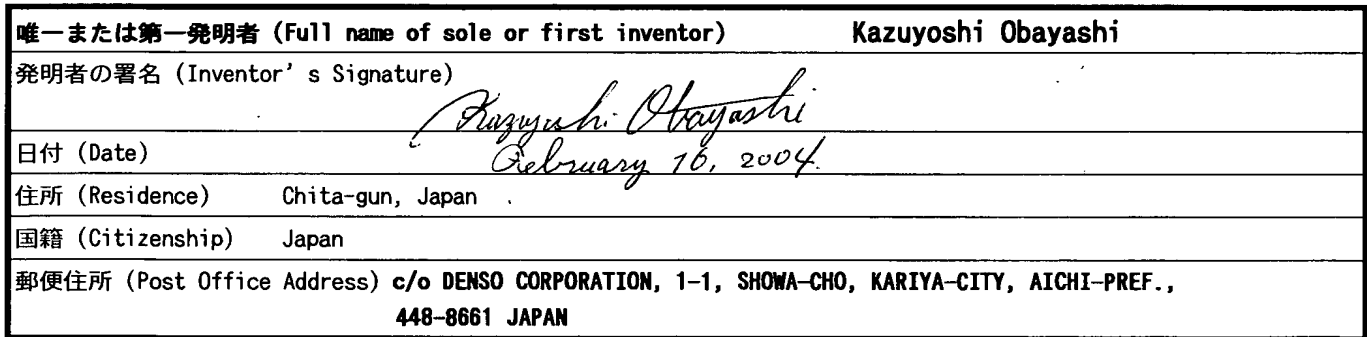 唯一または第一発明者 (Full name of sole or first inventor) Kazuyoshi Obayashi
発明者の署名 (Inventor's Signature)
Kazuyoshi Obayashi
日付 (Date) February 16, 2004.
住所 (Residence) Chita-gun, Japan
国籍 (Citizenship) Japan
郵便住所 (Post Office Address) c/o DENSO CORPORATION, 1-1, SHOWA-CHO, KARIYA-CITY, AICHI-PREF.,
448-8661 JAPAN